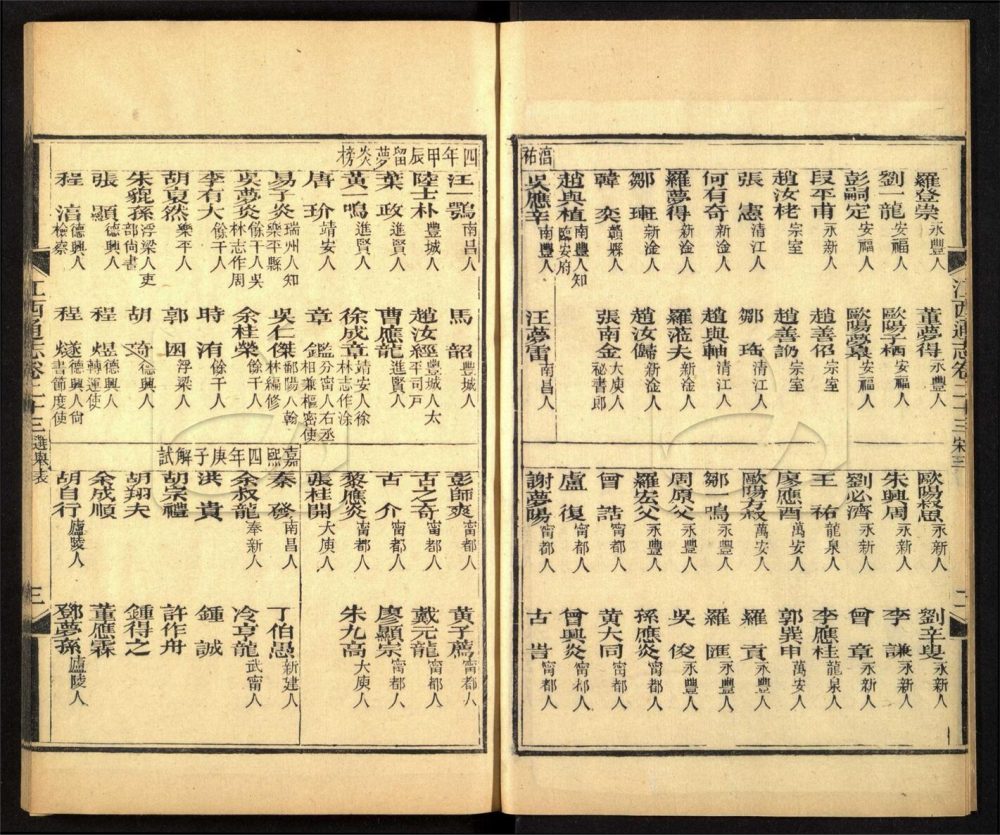 江西通志卷二十三 宋三
二
羅登崇永豐人 董夢得永豐人
劉一龍安福人 歐陽子栖安福人
彭嗣定安福人 歐陽夢
段平甫永新人 趙善佋宗室
趙汝栳宗室 趙善訒宗室
張憲清江人 鄒
何有奇新淦人 趙與軸清江人
羅羅夢得新淦人 羅蒞夫新淦人
鄒 新淦人 趙汝儔新淦人
韓奕贛縣人 張南金大庾人秘書郎
趙與植南豐人知臨安府
淳祐
吳應辛南豐人 汪夢雷南昌人
歐陽叔思永新人 劉辛叟永新人
朱興周永新人 李謙永新人
劉必濟永新人 曾章永新人
王祐龍泉人 李應桂龍泉人
廖應酉萬安人 郭巽申萬安人
歐陽有叔萬安人 羅貢永豐人
鄒一鳴永豐人 羅匯永豐人
周原父永豐人 吳俊永豐人
羅宏父永豐人 孫應炎甯都人
曾喆甯都人 黃大同甯都人
盧復甯都人 曾興炎甯都人
謝夢陽甯都人 古 甯都人
四年甲辰留夢炎榜
汪一鶚南昌人 馬韶豐城人
陸士朴豐城人 趙汝經豐城人太平司戶
葉政進賢人 曹應龍進賢人
黃鳴進賢人 徐成章靖安人徐林志作涂
唐玠靖安人 章鑑分甯人右丞相兼樞密使
易子炎瑞州人知樂平縣 吳仁傑鄱陽人翰林編修
吳夢炎餘干人吳林志作周 余桂榮餘干人
李有大餘干人 時洧餘干人
胡袞然樂平人 郭困浮梁人
朱貔孫浮梁人吏部尚書 胡 德興人
張顯德興人 程煜德興人轉運使
程涪德興人檢察 程燧德興人尙書節度使
彭師爽甯都人 黃子薦甯都人
古之奇甯都人 戴元龍甯都人
古介甯都人 廖顯宗甯都人
黎應炎甯都人 朱九高大庾人
張桂開大庾人
嘉熙四年庚子解試
秦發南昌人 丁伯愚新建人
余叔龍奉新人 冷亨龍武甯人
洪貴 鍾誠
胡崇禮 許作舟
胡翔夫 鍾得之
余成順 董應霖
胡自行廬陵人 鄧夢孫廬陵人
江西通志卷二十三 選舉表
三